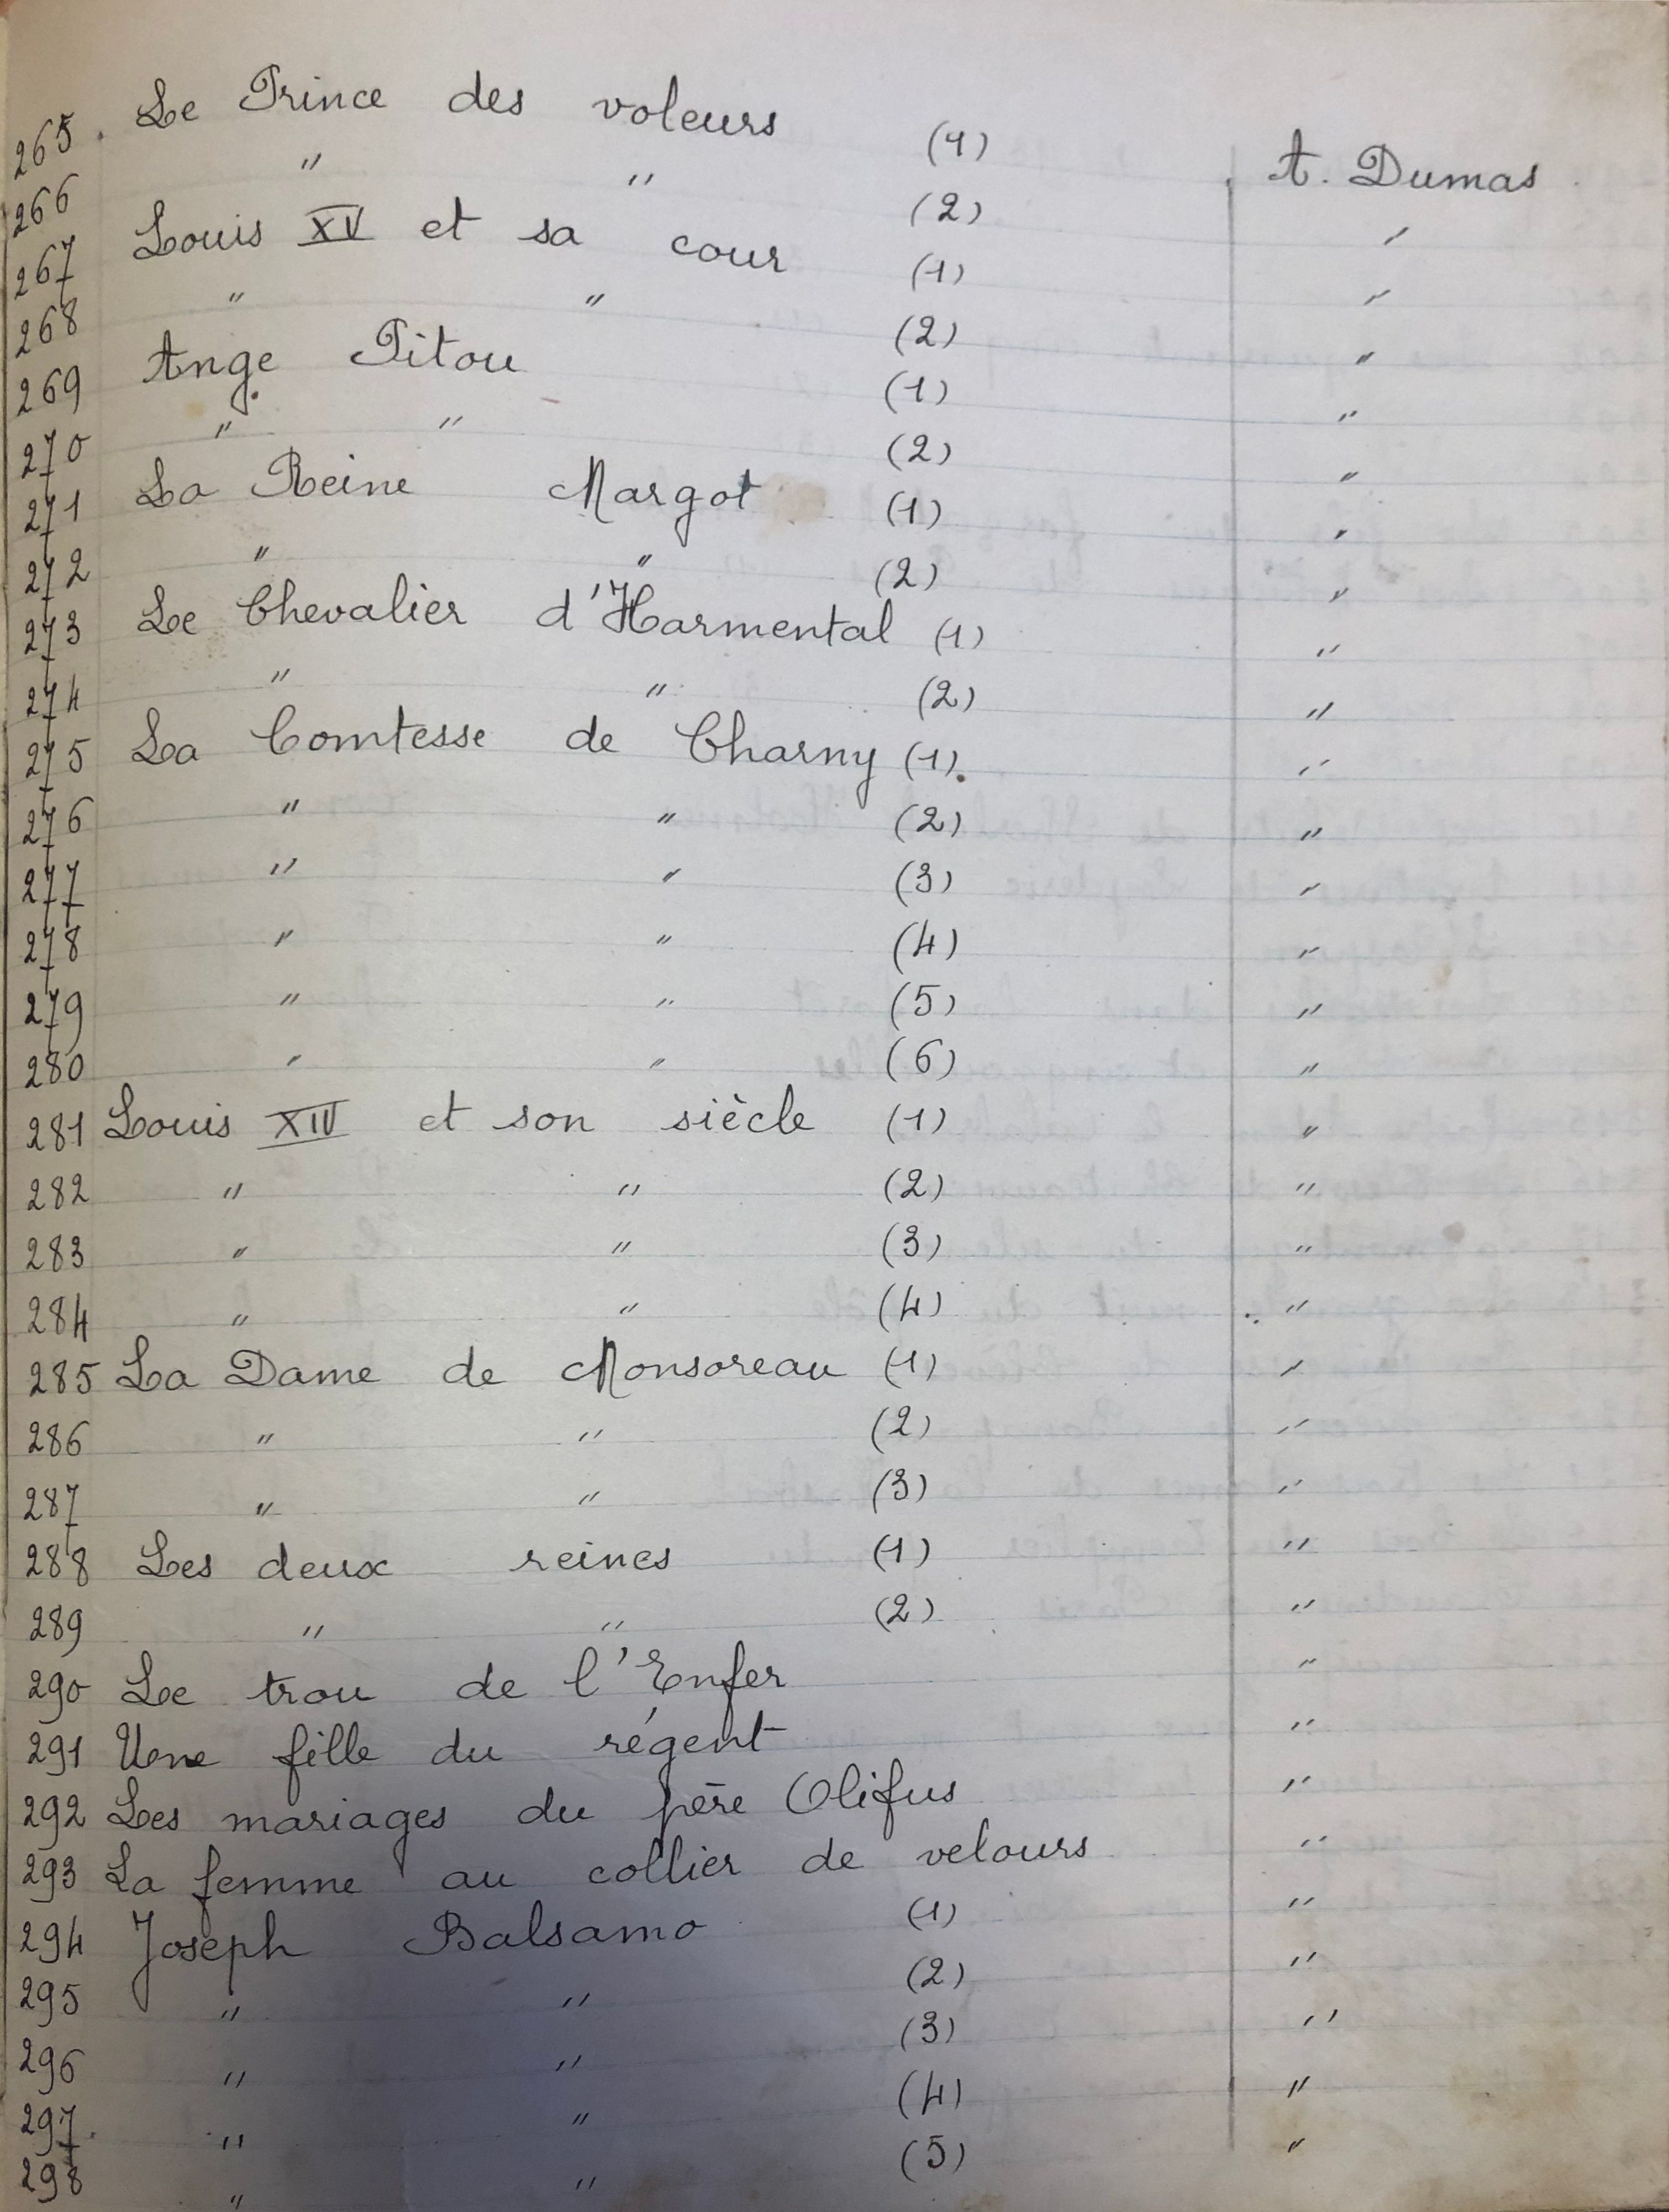 265. Le Prince des voleurs (1) A. Dumas
266 " " (2) "
267 Louis XV et sa cour (1) "
268 " " (2) "
269 Ange Pitou (1) "
270 " " (2) "
271 La Reine Margot (1) "
272 " " (2) "
273 Le Chevalier d'Harmental (1) "
274 " " (2) "
275 La Comtesse de Charny (1). "
276 " " (2) "
277 " " (3) "
278 " " (4) "
279 " " (5) "
280 " " (6) "
281 Louis XIV et son siècle (1) "
282 " " (2) "
283 " " (3) "
284 " " (4) "
285 La Dame de Monsoreau (1) "
286 " " (2) "
287 " " (3) "
288 Les deux reines (1) "
289 " " (2) "
290 Le trou de l'Enfer "
291 Une fille du régent "
292 Les mariages du père Olifus "
293 La femme au collier de velours "
294 Joseph Balsamo (1) "
295 " " (2) "
296 " " (3) "
297. " " (4) "
298 " " (5) "